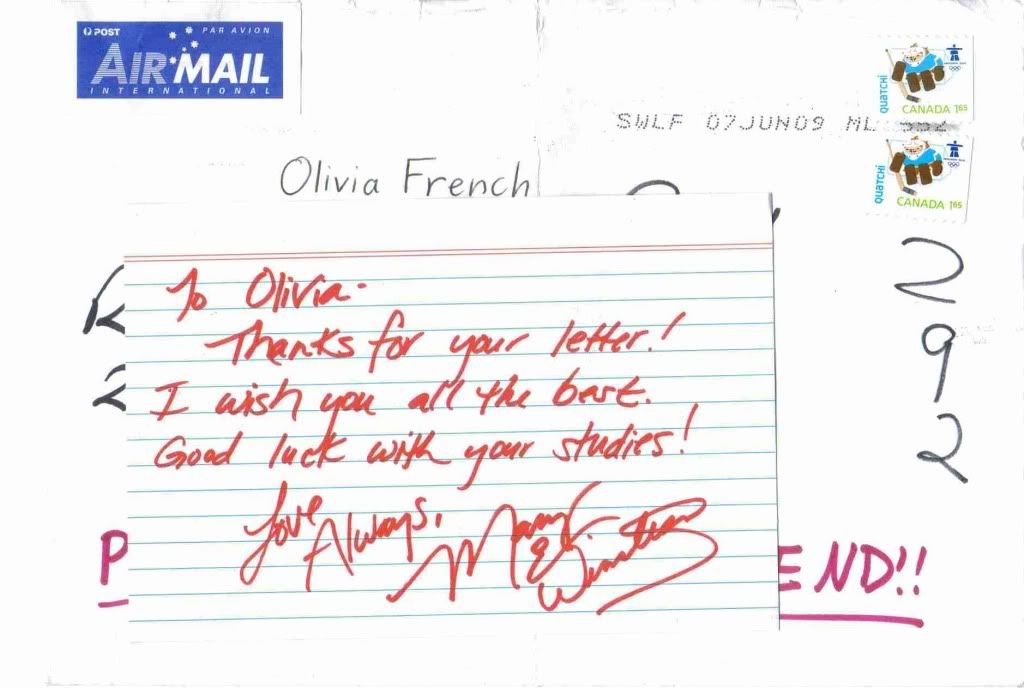 POST PAR AVION
AIR MAIL
INTERNATIONAL
QUATCHI
CANADA 165
SWLF 07JUN09
QUATCHI
CANADA 165
Olivia French
2
9
2
To Olivia-
Thanks for your letter!
I wish you all the best.
Good luck with your studies!
Love
Always,
Mary E. Winstead
P
END!!